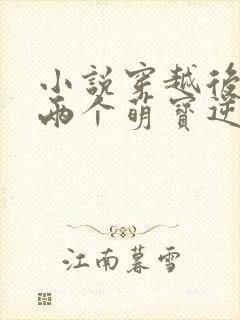 小説穿越後
兩个萌寶逆
江南暮雪